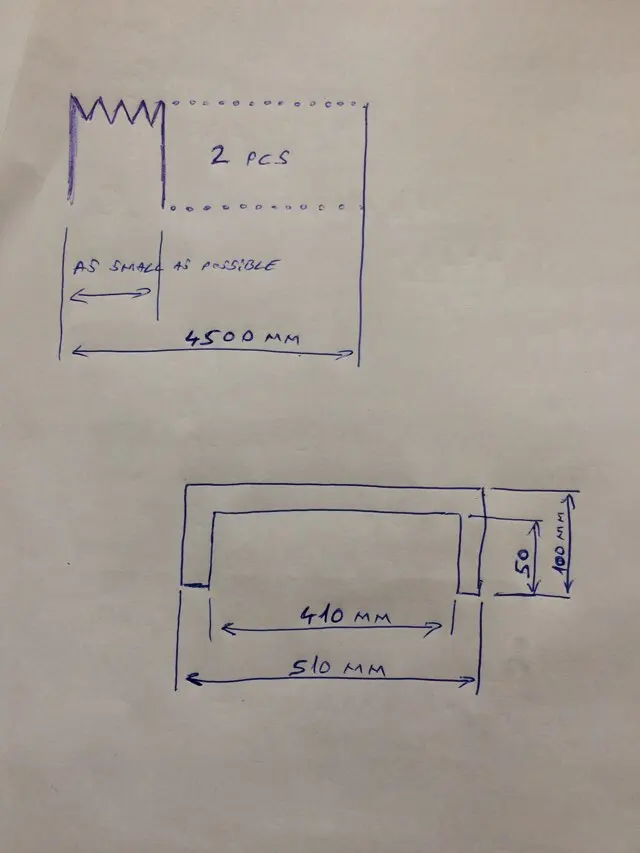 2 PCS
AS SMALL AS POSSIBLE
4500 MM
50
100 MM
410 MM
510 MM